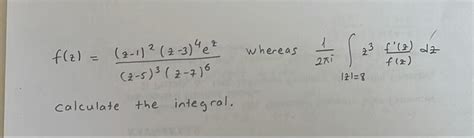 f(z) = (z-1)² (z-3)⁴ eᶻ / (z-5)³ (z-7)⁶ whereas 1/2πi ∫_{|z|=8} z³ f'(z)/f(z) dz
calculate the integral.